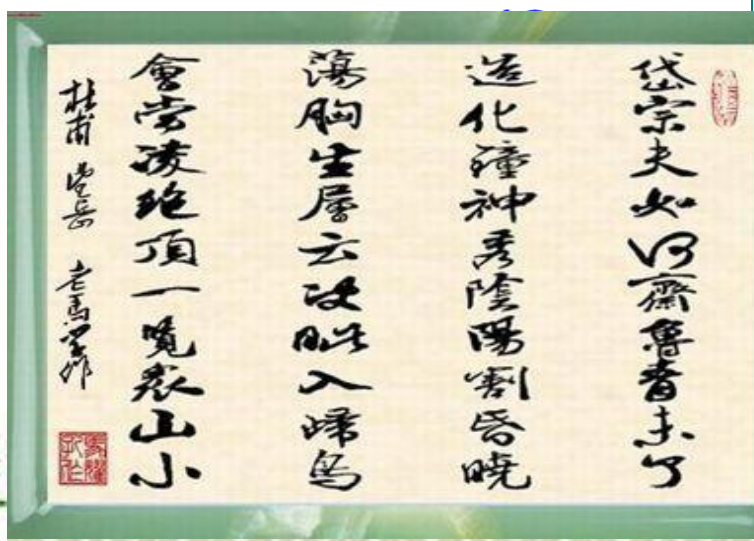 岱宗夫如何齊魯青未了
造化鐘神秀陰陽割昏曉
蕩胸生層云決眦入歸鳥
會當凌絕頂一覽衆山小
杜甫 望岳 老馬作